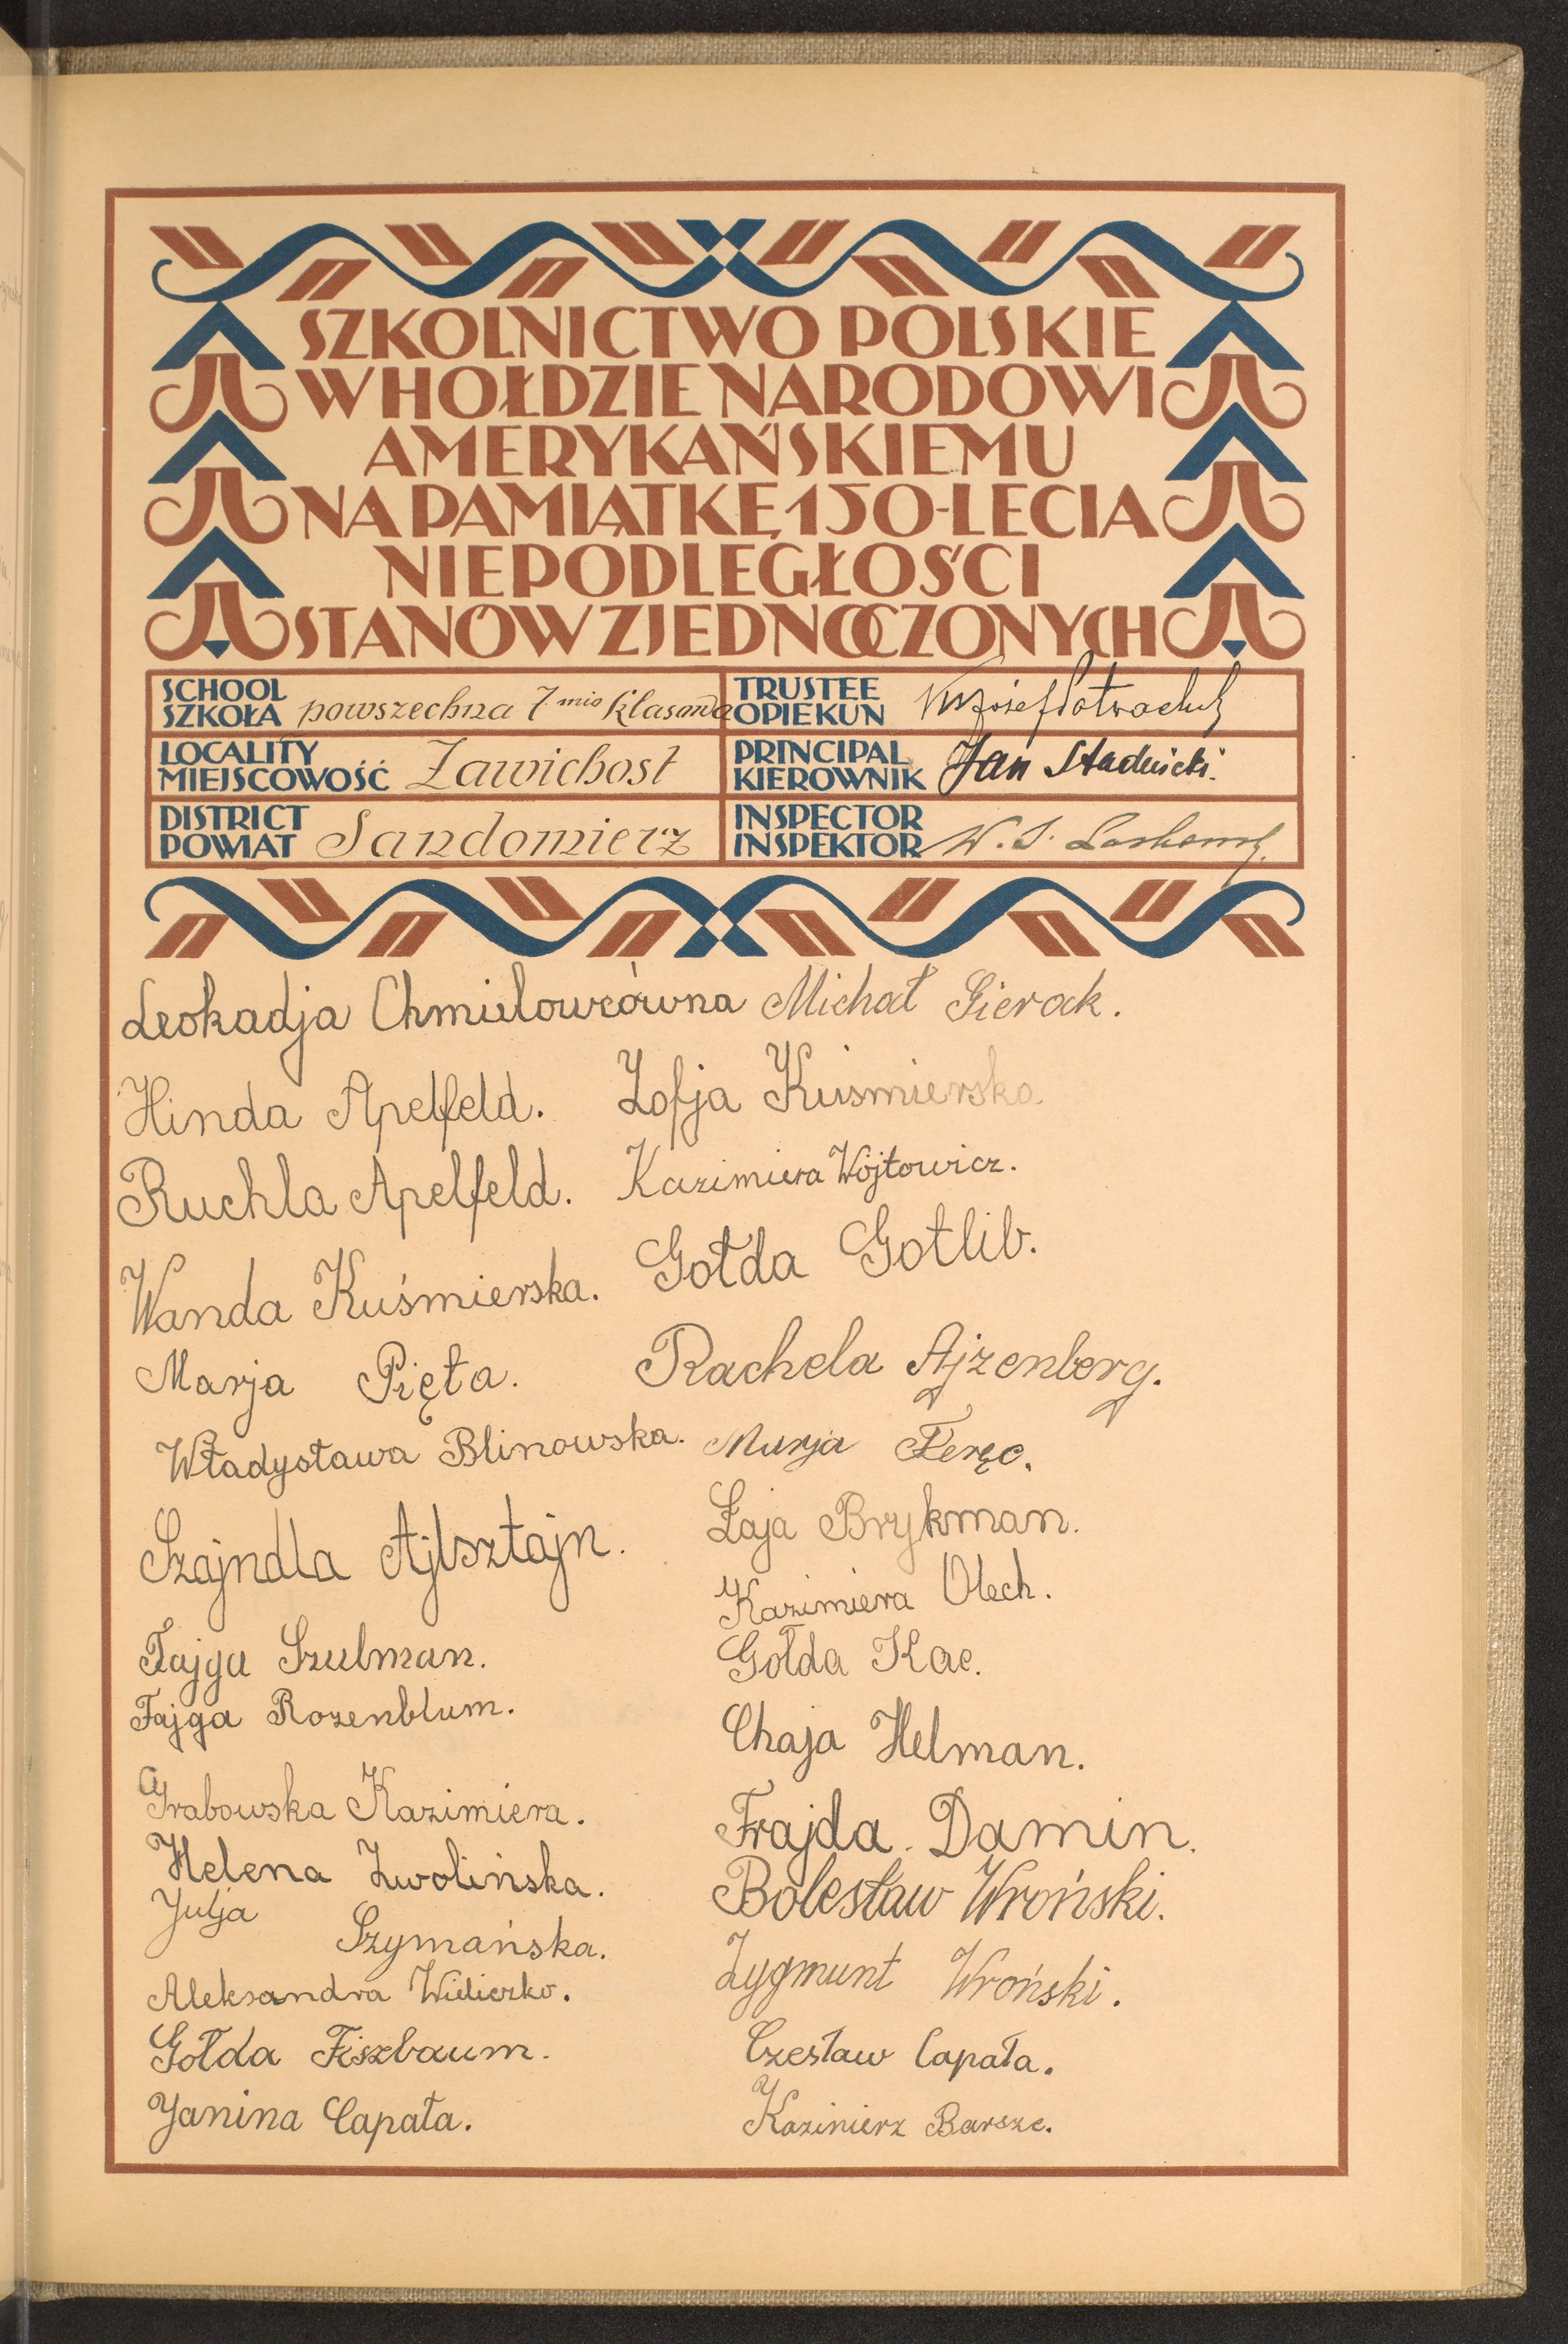 SZKOLNICTWO POLSKIE
W HOŁDZIE NARODOWI
AMERYKAŃSKIEMU
NA PAMIĄTKĘ 150-LECIA
NIEPODLEGŁOŚCI
STANÓW ZJEDNOCZONYCH
SCHOOL
SZKOŁA powszechna 7 mio klasowa
TRUSTEE
OPIEKUN
LOCALITY
MIEJSCOWOŚĆ Zawichost
PRINCIPAL
KIEROWNIK Jan Stadnicki.
DISTRICT
POWIAT Sandomierz
INSPECTOR
INSPEKTOR W. S.
Leokadja Chmielowcówna
Hinda Apelfeld.
Ruchla Apelfeld.
Wanda Kuśmierska.
Marja Pięta.
Władysława Blinowska.
Szajndla Ajlsztajn.
Fajga Szulman.
Fajga Rozenblum.
Grabowska Kazimiera.
Helena Zwolińska.
Julja Szymańska.
Aleksandra
Gołda Fiszbaum.
Janina Capała.
Michał Sierak.
Zofja Kuśmierska
Kazimiera Wójtowicz.
Gołda Gotlib.
Rachela Ajzenberg.
Marja Feręc.
Łaja Brykman.
Kazimiera Olech.
Gołda Kac.
Chaja Helman.
Frajda Damin.
Bolesław Wroński.
Zygmunt Wroński.
Czesław Capała.
Kazimierz Barszc.